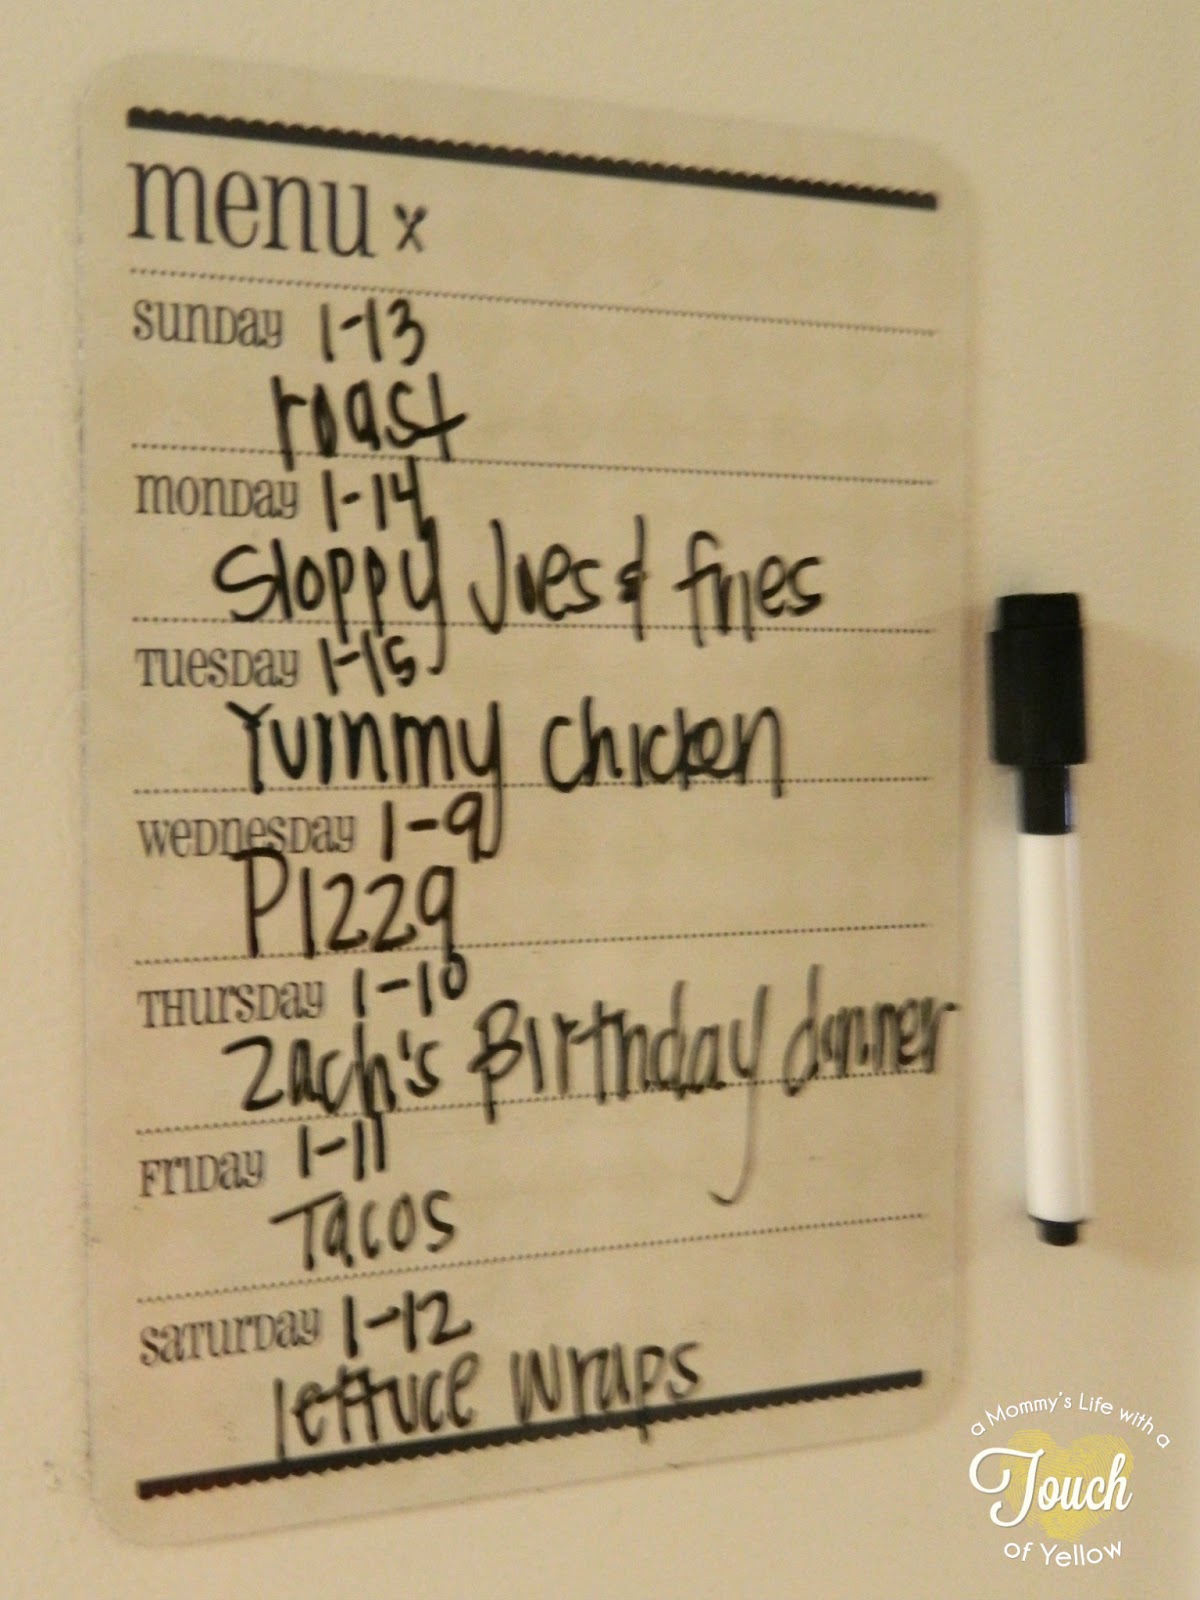 menu x
Sunday 1-13
roast
Monday 1-14
Sloppy Joes & fries
Tuesday 1-15
Yummy chicken
Wednesday 1-9
Pizza
Thursday 1-10
Zach's Birthday dinner
Friday 1-11
Tacos
Saturday 1-12
lettuce wraps
a Mommy's Life with a
Touch
of Yellow